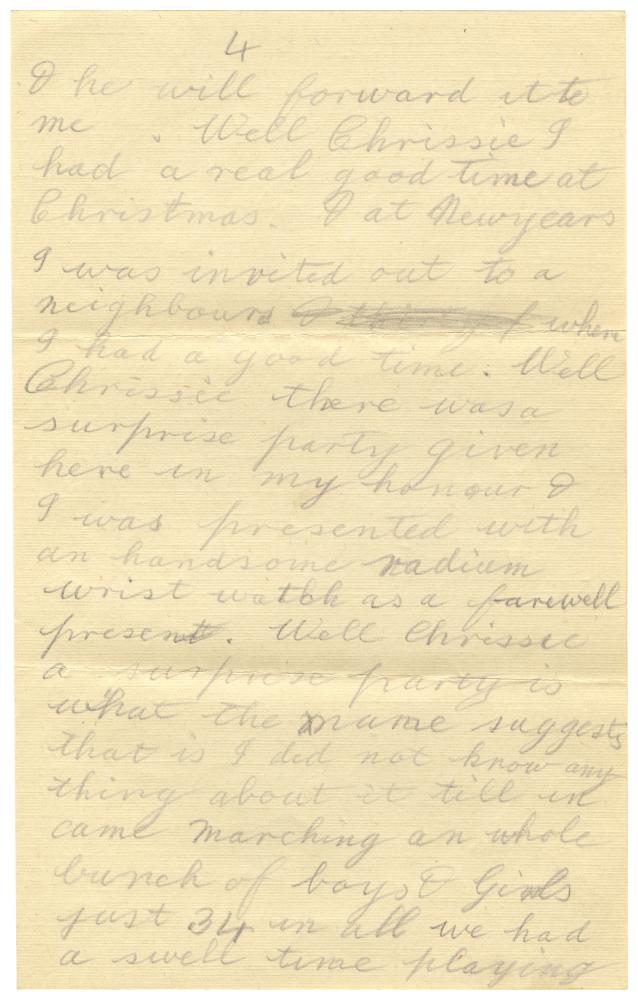 4
& he will forward it to
me . Well Chrissie I
had a real good time at
Christmas. & at Newyears
I was invited out to a
neighbours when
I had a good time. Well
Chrissie there was a
surprise party given
here in my honour &
I was presented with
an handsome radium
wrist watch as a farewell
present. Well Chrissie
a surprise party is
what the name suggests
that is I did not know any
thing about it till in
came marching an whole
bunch of boys & Girls
just 34 in all we had
a swell time playing